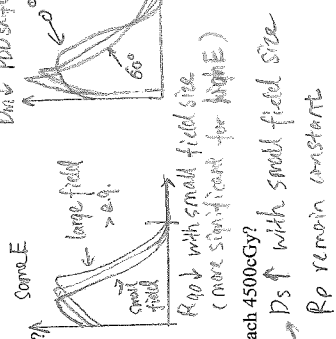 Dm ↓ PDD
0°
60°
?
Same E
large field
> eq.
small
field
R90 ↓ with small field size
(more significant for high E)
ach 4500cGy?
Ds ↑ with small field size
Rp remain constant